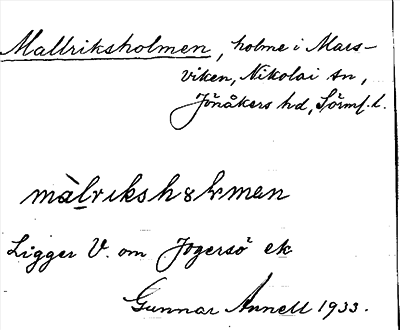 Mallriksholmen, holme i Mars-
viken, Nikolai sn,
Jönåkers hd, Sörml. l.
Ligger V. om Jogersö ek
Gunnar Annell 1933.